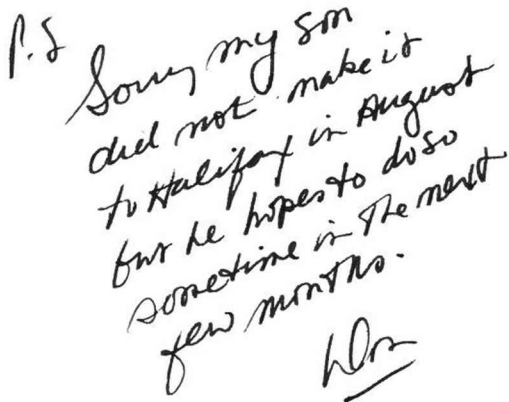 P.S
Sorry my son
did not make it
to Halifax in August
but he hopes to do so
sometime in the next
few months.
Don